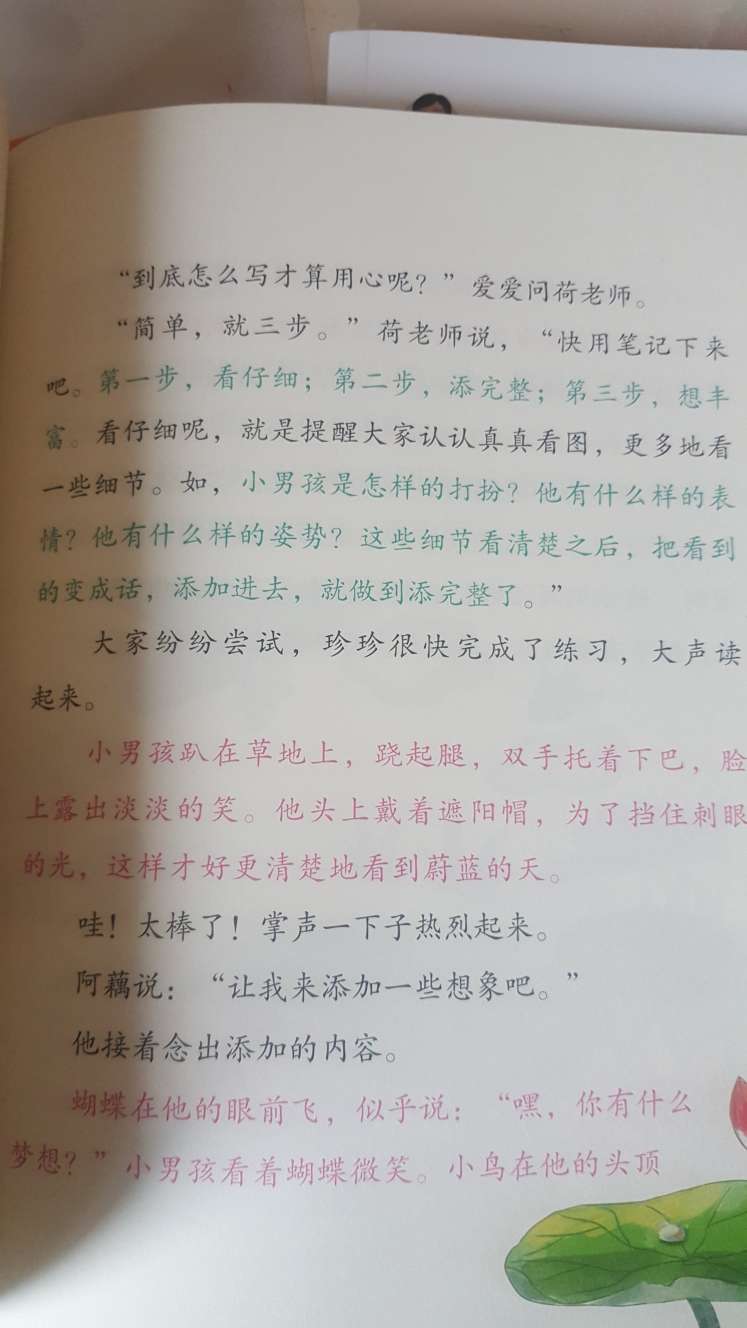 “到底怎么写才算用心呢？”爱爱问荷老师。
“简单，就三步。”荷老师说，“快用笔记下来
吧。第一步，看仔细；第二步，添完整；第三步，想丰
富。看仔细呢，就是提醒大家认认真真看图，更多地看
一些细节。如，小男孩是怎样的打扮？他有什么样的表
情？他有什么样的姿势？这些细节看清楚之后，把看到
的变成话，添加进去，就做到添完整了。”
大家纷纷尝试，珍珍很快完成了练习，大声读
起来。
小男孩趴在草地上，跷起腿，双手托着下巴，脸
上露出淡淡的笑。他头上戴着遮阳帽，为了挡住刺眼
的光，这样才好更清楚地看到蔚蓝的天。
哇！太棒了！掌声一下子热烈起来。
阿藕说：“让我来添加一些想象吧。”
他接着念出添加的内容。
蝴蝶在他的眼前飞，似乎说：“嘿，你有什么
梦想？”小男孩看着蝴蝶微笑。小鸟在他的头顶